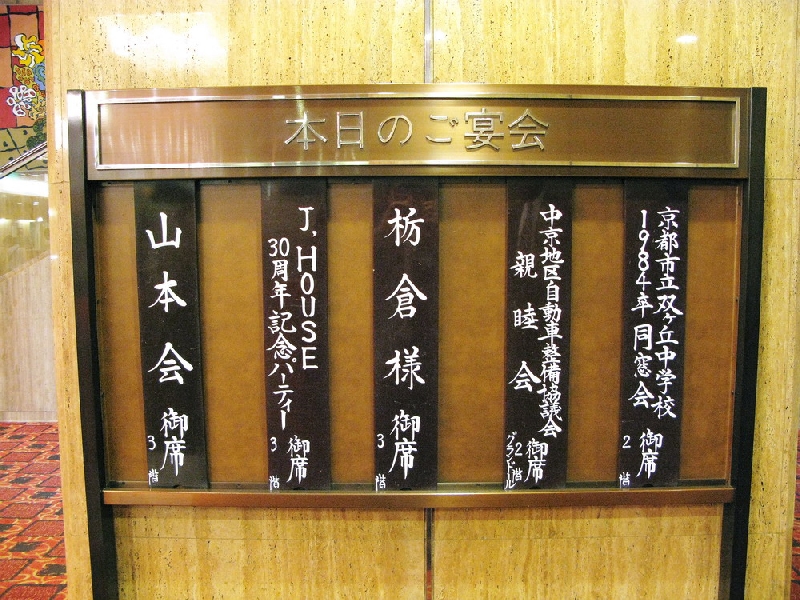 本日のご宴会
京都市立双ヶ丘中学校
1984年卒同窓会
御席
2階
中京地区自動車整備協議会
親睦会
御席
2階
グランドール
栃倉様
御席
3階
J.HOUSE
30周年記念パーティー
御席
3階
山本会
御席
3階